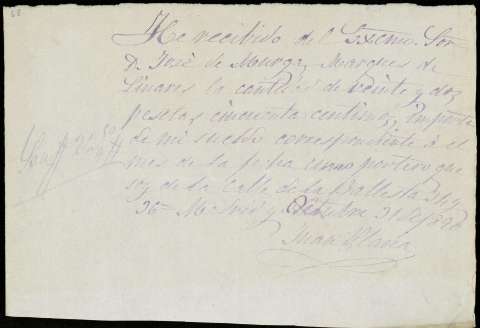 He recibido del Exmo. Sor.
D. José de Murga, Marques de
Linares la cantidad de veinte y dos
pesetas, cincuenta centimos, importe
de mi sueldo correspondiente á el
mes de la fecha como portero que
soy de la Calle de la Ballesta 34 y
36= Madrid y Octubre 31 de 1898
Juan